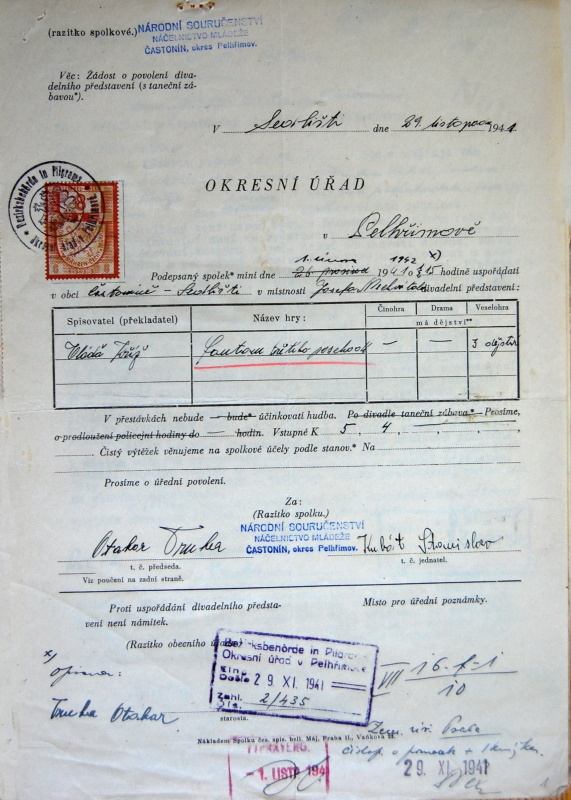 (razítko spolkové.)
NÁRODNÍ SOURUČENSTVÍ
NÁČELNICTVO MLÁDEŽE
ČASTONÍN, okres Pelhřimov.
Věc: Žádost o povolení diva-
delního představení (s taneční zá-
bavou*).
V dne 29. listopadu 1941.
Bezirksbehörde in Pilgrams
OKRESNÍ ÚŘAD
v Pelhřimově
1. 1942 x)
Podepsaný spolek* míní dne 26. prosince 1941 o 3/15 hodině uspořádati
v obci v místnosti Josefa divadelní představení:
Spisovatel (překladatel) Název hry: Činohra Drama Veselohra
má dějství**
Vláďa Fantom třetího — — 3 dějství
V přestávkách nebude — bude* účinkovati hudba. Po divadle taneční zábava.* Prosíme,
o prodloužení policejní hodiny do — hodin. Vstupné K 5, 4,
Čistý výtěžek věnujeme na spolkové účely podle stanov.* Na
Prosíme o úřední povolení.
Za:
(Razítko spolku:)
NÁRODNÍ SOURUČENSTVÍ
NÁČELNICTVO MLÁDEŽE
ČASTONÍN, okres Pelhřimov.
Otakar Trucha Kubát Stanislav
t. č. předseda. t. č. jednatel.
Viz poučení na zadní straně.
Proti uspořádání divadelního představ-
vení není námitek.
Místo pro úřední poznámky.
(Razítko obecního
Bezirksbehörde in Pilgrams
Okresní úřad v Pelhřimově
Došlo 29. XI. 1941
Zahl.
Čís. 2/435
x)
oprava:
VII 16-f-1
10
Trucha Otakar
starosta.
Nákladem Spolku čes. spis. bell. Máj, Praha II., Vaňkova II.
VYPRAVENO.
-1. LISTP. 194
29 XI. 1941